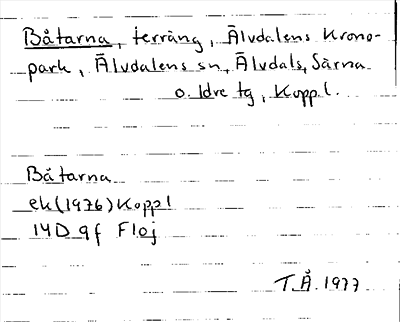 Båtarna, terräng, Älvdalens Krono-
park, Älvdalens sn, Älvdals, Särna
o. Idre tg, Koppl.
Båtarna
ek (1976) Koppl
14D 9f Floj
T.Å. 1977